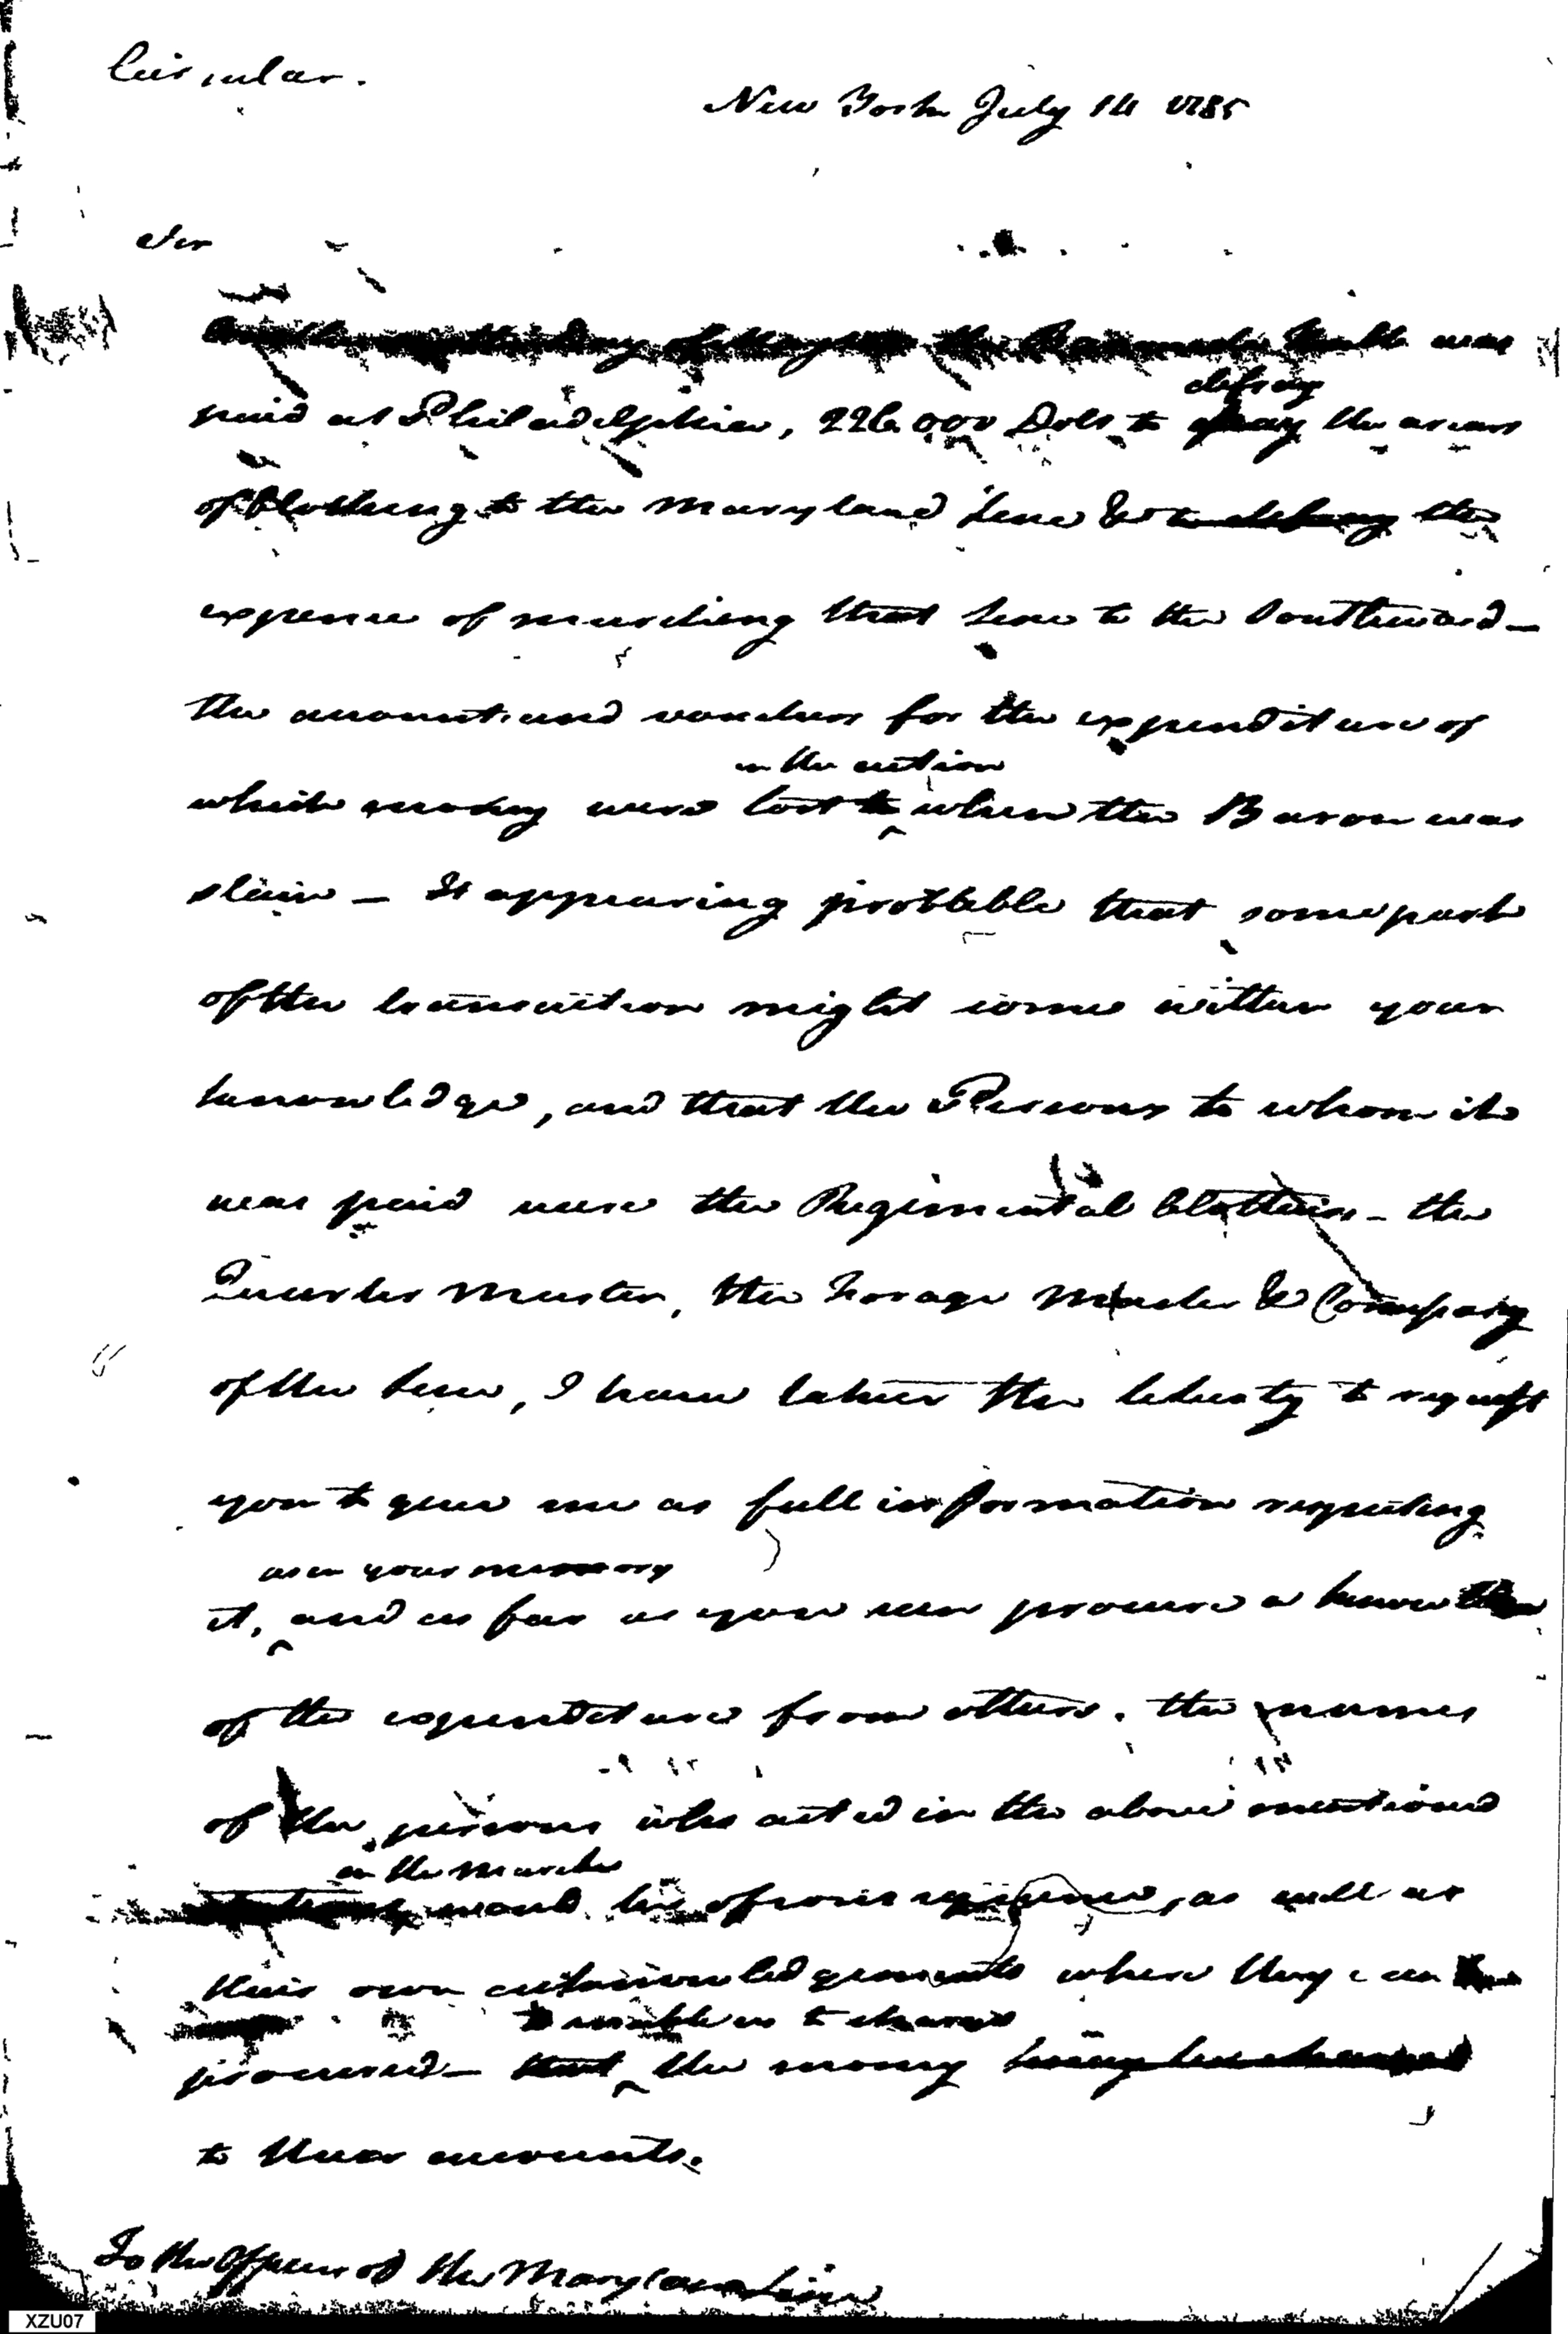 Circular.
New York July 14 1785
Sir
the Baron de Kalb was
defray
paid at Philadelphia, 226,000 Dolls to pay the arears
of Clothing to the Maryland Line & to defray the
expence of marching that Line to the Southward —
the account and vouchers for the expenditure of
in the action
which money were lost when the Baron was
slain — It appearing probable that some part
of the transaction might come within your
knowledge, and that the Persons to whom it
was paid were the Regimental Clothiers — the
Quarter Master, the Forage Master &
of the Line, I have taken the liberty to request
you to give me as full information respecting
as in your memory
it, and as far as you can procure a knowe
of the expenditure from others. the names
of the persons who acted in the above mentioned
on the march
would be of use, as well as
their own acknowledgements where they can
enable us to charge
procured — that the money being be charged
to their accounts.
To the Officers of the Maryland Line
XZU07